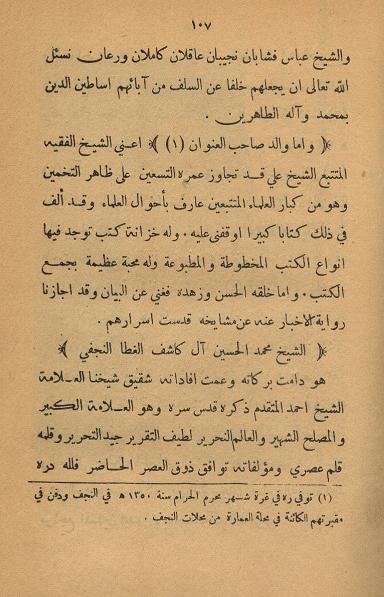 ١٠٧
والشيخ عباس فشابان نجيبان عاقلان كاملان ورعان نسئل
الله تعالى ان يجعلهم خلفا عن السلف من آبائهم اساطين الدين
بمحمد وآله الطاهرين .
﴿ واما والد صاحب العنوان (١) ﴾ اعني الشيخ الفقيه
المتتبع الشيخ علي قد تجاوز عمره التسعين على ظاهر التخمين
وهو من كبار العلماء المتتبعين عارف بأحوال العلماء وقد ألف
في ذلك كتابا كبيرا اوقفني عليه . وله خزانة كتب توجد فيها
انواع الكتب المخطوطة والمطبوعة وله محبة عظيمة بجمع
الكتب . واما خلقه الحسن وزهده فغني عن البيان وقد اجازنا
رواية الاخبار عنه عن مشايخه قدست اسرارهم .
﴿ الشيخ محمد الحسين آل كاشف الغطا النجفي ﴾
هو دامت بركاته وعمت افاداته شقيق شيخنا العلامة
الشيخ احمد المتقدم ذكره قدس سره وهو العلامة الكبير
والمصلح الشهير والعالم النحرير لطيف التقرير جيد التحرير وقلمه
قلم عصري ومؤلفاته توافق ذوق العصر الحاضر فلله دره
(١) توفي ره في غرة شهر محرم الحرام سنة ١٣٥٠ ه في النجف ودفن في
مقبرتهم الكائنة في محلة العمارة من محلات النجف .